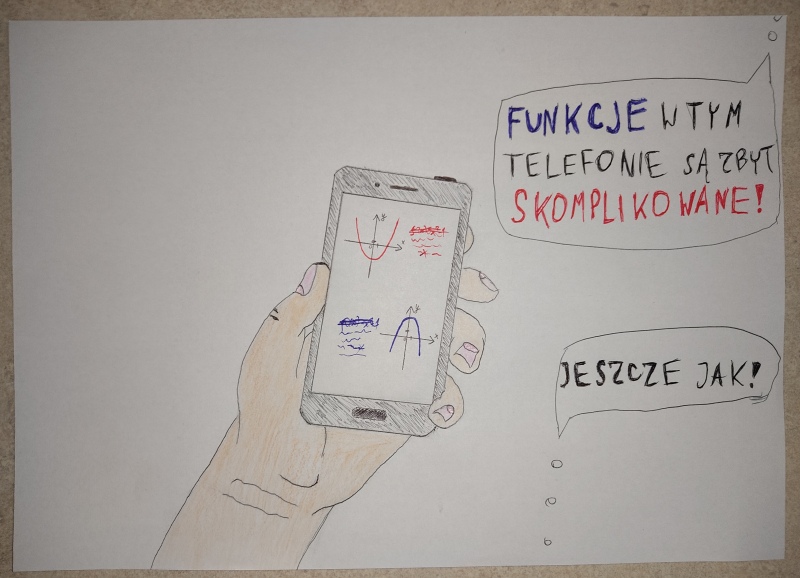 FUNKCJE W TYM
TELEFONIE SĄ ZBYT
SKOMPLIKOWANE!
JESZCZE JAK!